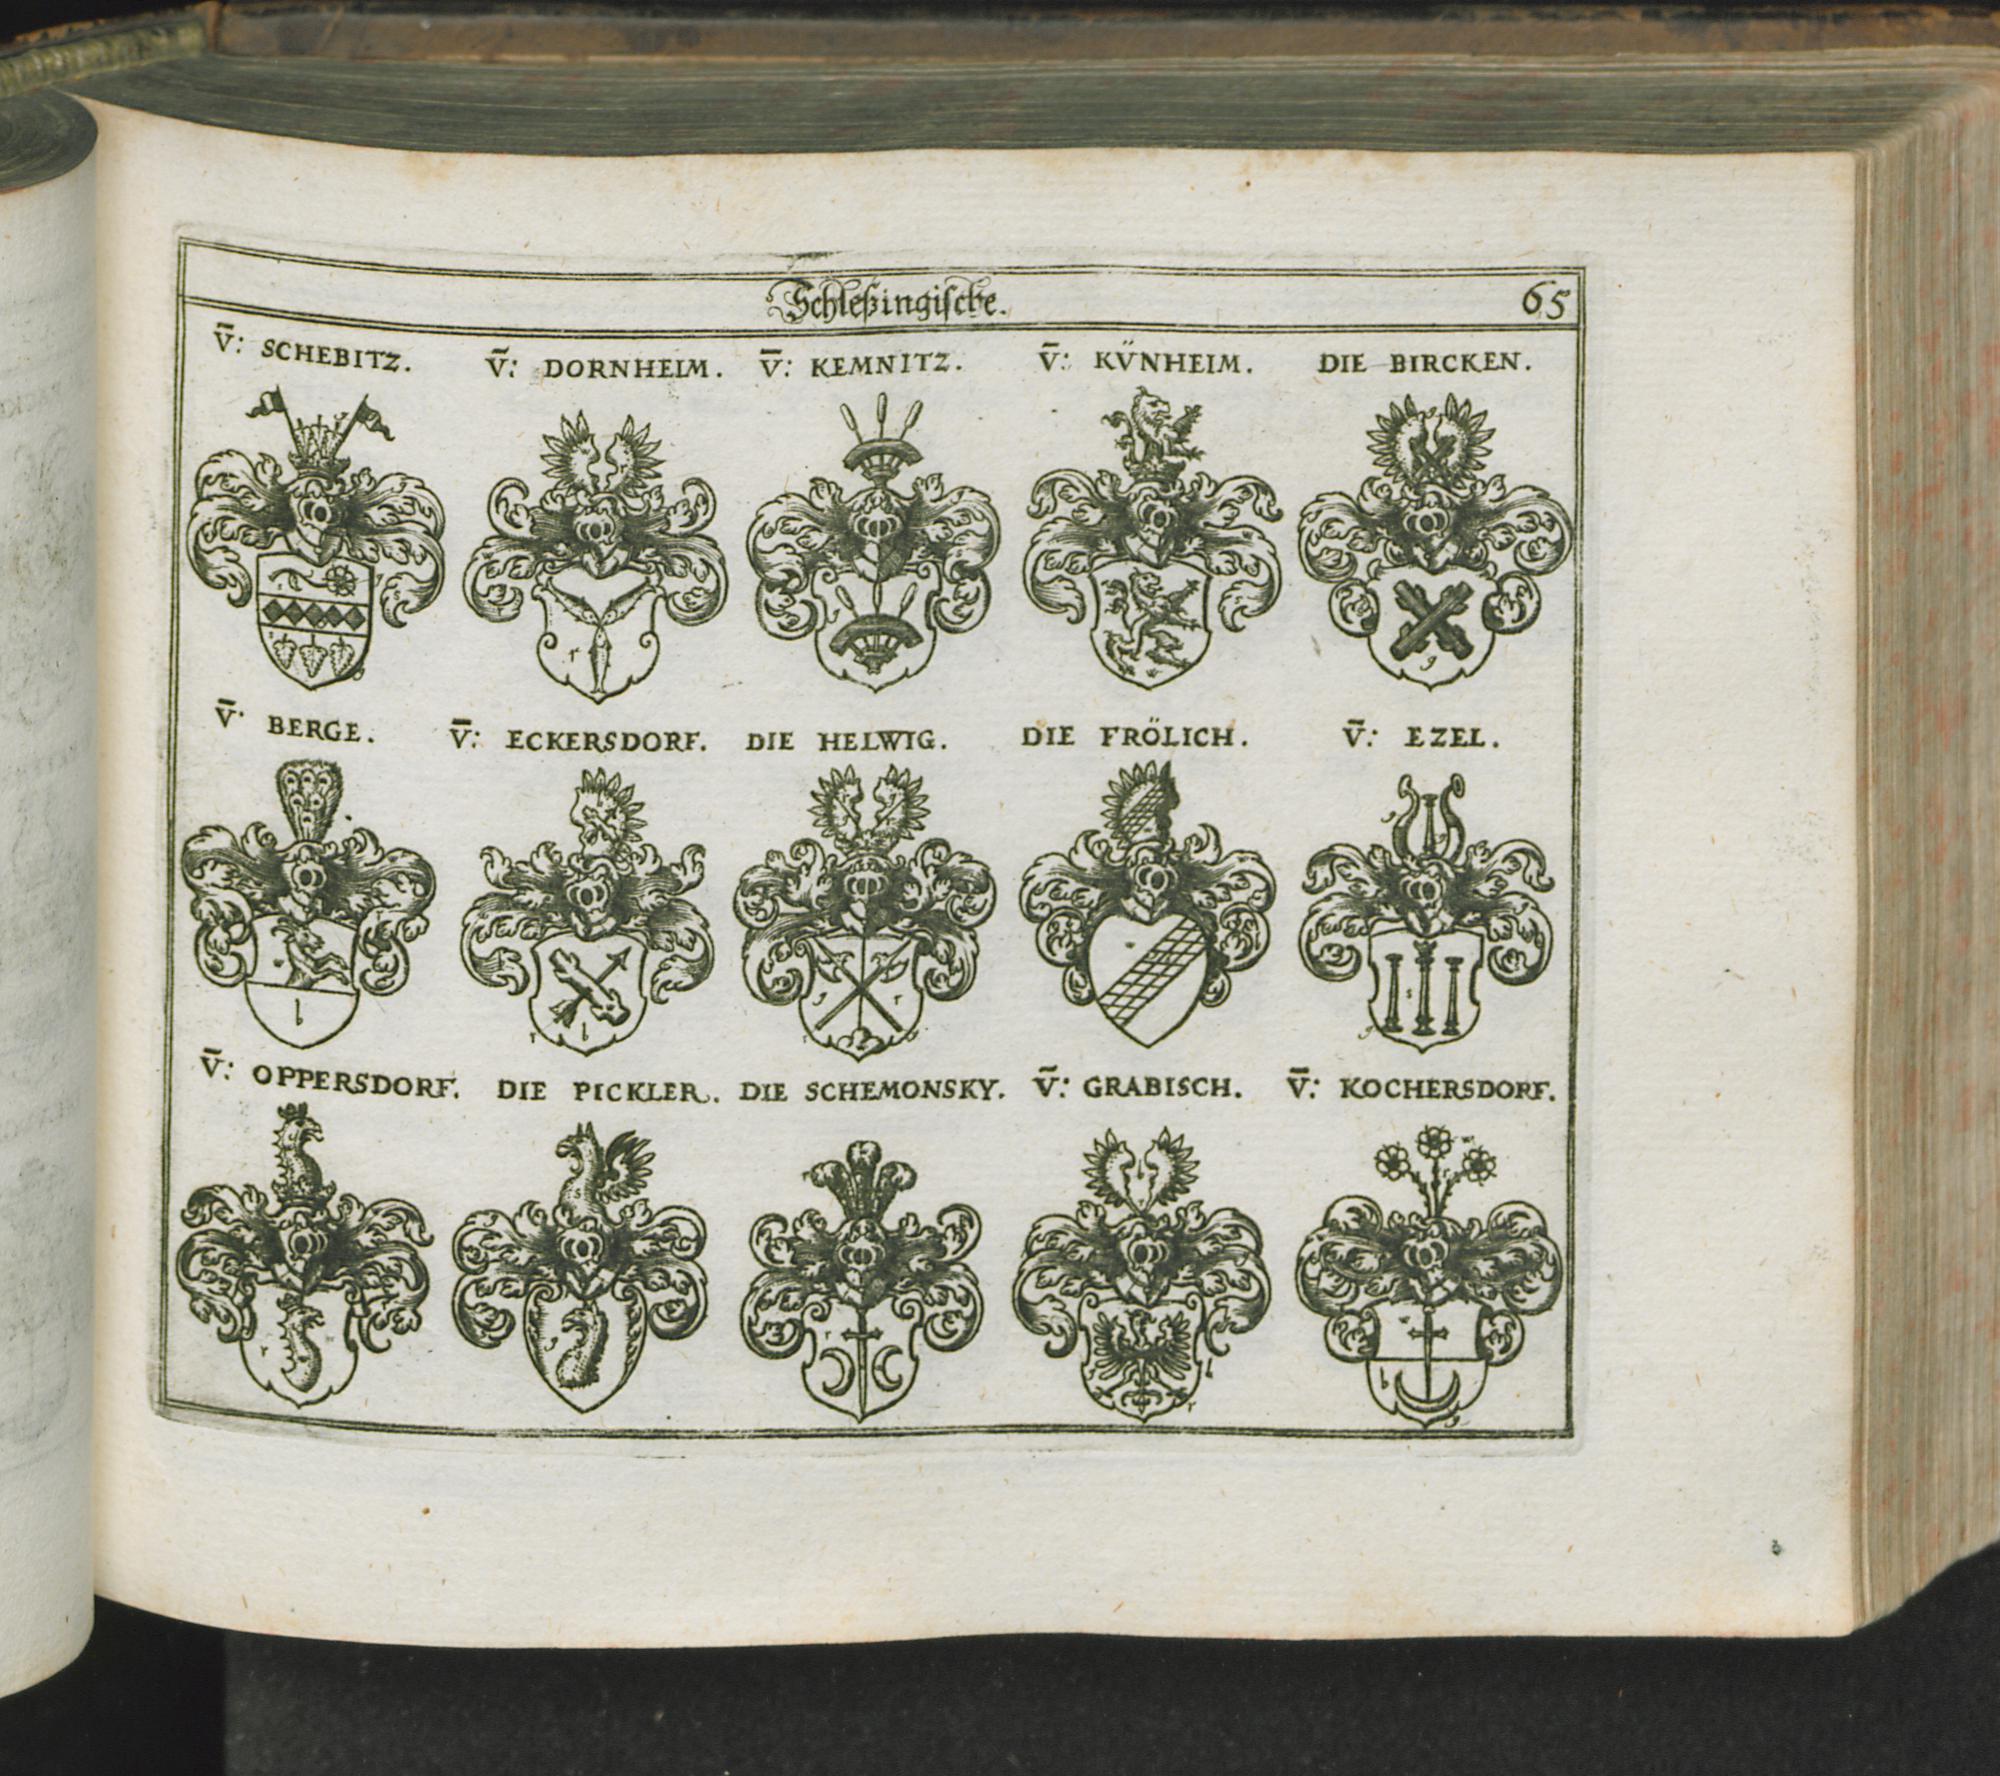 Schleßingische.
65
V̄: SCHEBITZ. V̄: DORNHEIM. V̄: KEMNITZ. V̄: KÜNHEIM. DIE BIRCKEN.
V̄. BERGE. V̄: ECKERSDORF. DIE HELWIG. DIE FRÖLICH. V̄: EZEL.
V̄: OPPERSDORF. DIE PICKLER. DIE SCHEMONSKY. V̄: GRABISCH. V̄: KOCHERSDORF.